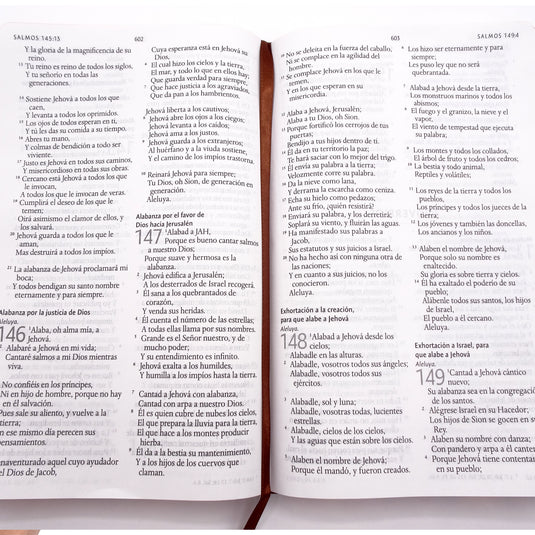 SALMOS 145:13
602
Y la gloria de la magnificencia de su
reino.
13 Tu reino es reino de todos los siglos,
Y tu señorío en todas las
generaciones.
14 Sostiene Jehová a todos los que
caen,
Y levanta a todos los oprimidos.
15 Los ojos de todos esperan en ti,
Y tú les das su comida a su tiempo.
16 Abres tu mano,
Y colmas de bendición a todo ser
viviente.
17 Justo es Jehová en todos sus caminos,
Y misericordioso en todas sus obras.
18 Cercano está Jehová a todos los que
le invocan,
A todos los que le invocan de veras.
19 Cumplirá el deseo de los que le
temen;
Oirá asimismo el clamor de ellos, y
los salvará.
20 Jehová guarda a todos los que le
aman,
Mas destruirá a todos los impíos.
21 La alabanza de Jehová proclamará mi
boca;
Y todos bendigan su santo nombre
eternamente y para siempre.
Alabanza por la justicia de Dios
Aleluya.
146 1 Alaba, oh alma mía, a
Jehová.
2 Alabaré a Jehová en mi vida;
Cantaré salmos a mi Dios mientras
viva.
No confiéis en los príncipes,
Ni en hijo de hombre, porque no hay
en él salvación.
Pues sale su aliento, y vuelve a la
tierra;
En ese mismo día perecen sus
pensamientos.
Bienaventurado aquel cuyo ayudador
es el Dios de Jacob,
Cuya esperanza está en Jehová su
Dios,
6 El cual hizo los cielos y la tierra,
El mar, y todo lo que en ellos hay;
Que guarda verdad para siempre,
7 Que hace justicia a los agraviados,
Que da pan a los hambrientos.
Jehová liberta a los cautivos;
8 Jehová abre los ojos a los ciegos;
Jehová levanta a los caídos;
Jehová ama a los justos.
9 Jehová guarda a los extranjeros;
Al huérfano y a la viuda sostiene,
Y el camino de los impíos trastorna.
10 Reinará Jehová para siempre;
Tu Dios, oh Sion, de generación en
generación.
Aleluya.
Alabanza por el favor de
Dios hacia Jerusalén
147 1 Alabad a JAH,
Porque es bueno cantar salmos
a nuestro Dios;
Porque suave y hermosa es la
alabanza.
2 Jehová edifica a Jerusalén;
A los desterrados de Israel recogerá.
3 Él sana a los quebrantados de
corazón,
Y venda sus heridas.
4 Él cuenta el número de las estrellas;
A todas ellas llama por sus nombres.
5 Grande es el Señor nuestro, y de
mucho poder;
Y su entendimiento es infinito.
6 Jehová exalta a los humildes,
Y humilla a los impíos hasta la tierra.
7 Cantad a Jehová con alabanza,
Cantad con arpa a nuestro Dios.
8 Él es quien cubre de nubes los cielos,
El que prepara la lluvia para la tierra,
El que hace a los montes producir
hierba.
9 Él da a la bestia su mantenimiento,
Y a los hijos de los cuervos que
claman.
603
SALMOS 149:4
10 No se deleita en la fuerza del caballo,
Ni se complace en la agilidad del
hombre.
11 Se complace Jehová en los que le
temen,
Y en los que esperan en su
misericordia.
12 Alaba a Jehová, Jerusalén;
Alaba a tu Dios, oh Sion.
13 Porque fortificó los cerrojos de tus
puertas;
Bendijo a tus hijos dentro de ti.
14 Él da en tu territorio la paz;
Te hará saciar con lo mejor del trigo.
15 Él envía su palabra a la tierra;
Velozmente corre su palabra.
16 Da la nieve como lana,
Y derrama la escarcha como ceniza.
17 Echa su hielo como pedazos;
Ante su frío, ¿quién resistirá?
18 Enviará su palabra, y los derretirá;
Soplará su viento, y fluirán las aguas.
19 Ha manifestado sus palabras a
Jacob,
Sus estatutos y sus juicios a Israel.
20 No ha hecho así con ninguna otra de
las naciones;
Y en cuanto a sus juicios, no los
conocieron.
Aleluya.
Exhortación a la creación,
para que alabe a Jehová
Aleluya.
148 1 Alabad a Jehová desde los
cielos;
Alabadle en las alturas.
2 Alabadle, vosotros todos sus ángeles;
Alabadle, vosotros todos sus
ejércitos.
3 Alabadle, sol y luna;
Alabadle, vosotras todas, lucientes
estrellas.
4 Alabadle, cielos de los cielos,
Y las aguas que están sobre los cielos.
5 Alaben el nombre de Jehová;
Porque él mandó, y fueron creados.
6 Los hizo ser eternamente y para
siempre;
Les puso ley que no será
quebrantada.
7 Alabad a Jehová desde la tierra,
Los monstruos marinos y todos los
abismos;
8 El fuego y el granizo, la nieve y el
vapor,
El viento de tempestad que ejecuta
su palabra;
9 Los montes y todos los collados,
El árbol de fruto y todos los cedros;
10 La bestia y todo animal,
Reptiles y volátiles;
11 Los reyes de la tierra y todos los
pueblos,
Los príncipes y todos los jueces de la
tierra;
12 Los jóvenes y también las doncellas,
Los ancianos y los niños.
13 Alaben el nombre de Jehová,
Porque sólo su nombre es
enaltecido.
Su gloria es sobre tierra y cielos.
14 Él ha exaltado el poderío de su
pueblo;
Alábenle todos sus santos, los hijos
de Israel,
El pueblo a él cercano.
Aleluya.
Exhortación a Israel, para
que alabe a Jehová
Aleluya.
149 1 Cantad a Jehová cántico
nuevo;
Su alabanza sea en la congregación
de los santos.
2 Alégrese Israel en su Hacedor;
Los hijos de Sion se gocen en su
Rey.
3 Alaben su nombre con danza;
Con pandero y arpa a él canten.
4 Porque Jehová tiene contentamiento
en su pueblo;